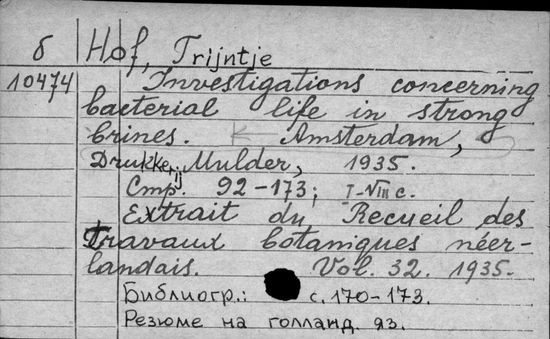 б Hof, Trijntje
10474 Investigations concerning
bacterial life in strong
brines. Amsterdam,
Drukkerij Mulder, 1935.
Стр. 92-173; I-VIII с.
Extrait du Recueil des
Travaux botaniques néer-
landais. Vol. 32. 1935.
Библиогр.: с. 170-173.
Резюме на голланд. яз.